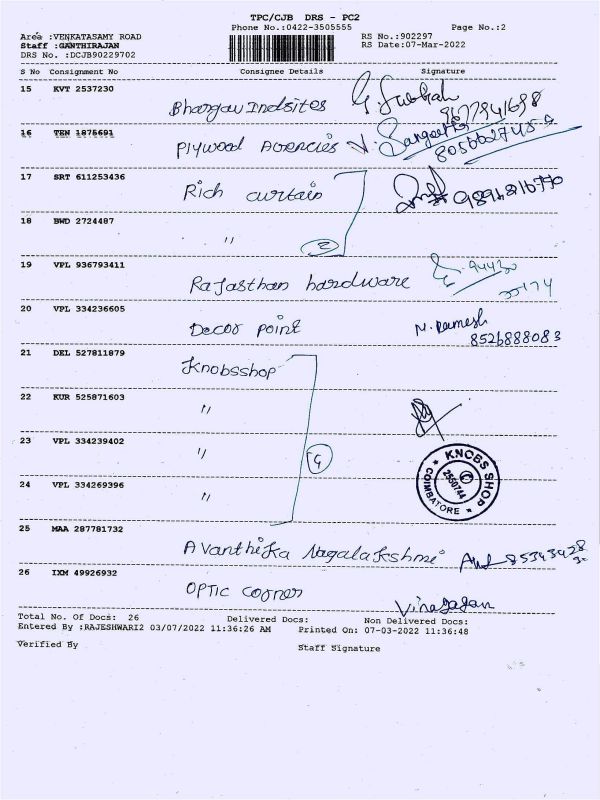 TPC/CJB DRS - PC2
Phone No.:0422-3505555 Page No.:2
Area :VENKATASAMY ROAD RS No.:902297
Staff :GANTHIRAJAN RS Date:07-Mar-2022
DRS No. :DCJB90229702
S No Consignment No Consignee Details Signature
15 KVT 2537230
Bhargav Indsites
16 TEN 1875691
Plywood Agencies V. Sangeetha
17 SRT 611253436
Rich curtain
18 BWD 2724487
" 2
19 VPL 936793411
Rajasthan hardware 94430
20 VPL 334236605
Decor point N. Ramesh
8526888083
21 DEL 527811879
Knobsshop
22 KUR 525871603
"
23 VPL 334239402
" 4
KNOBS SHOP
2550744
COIMBATORE
24 VPL 334269396
"
25 MAA 287781732
Avanthika Nagalakshmi
26 IXM 49926932
OPTIC corner
Vinayagan
Total No. Of Docs: 26 Delivered Docs: Non Delivered Docs:
Entered By :RAJESHWARI2 03/07/2022 11:36:26 AM Printed On: 07-03-2022 11:36:48
Verified By Staff Signature